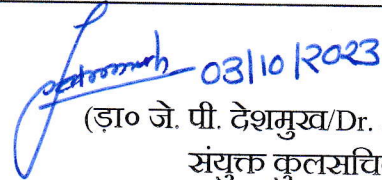 03/10/2023
(ड़ा० जे. पी. देशमुख/Dr.
संयुक्त कुलसचि